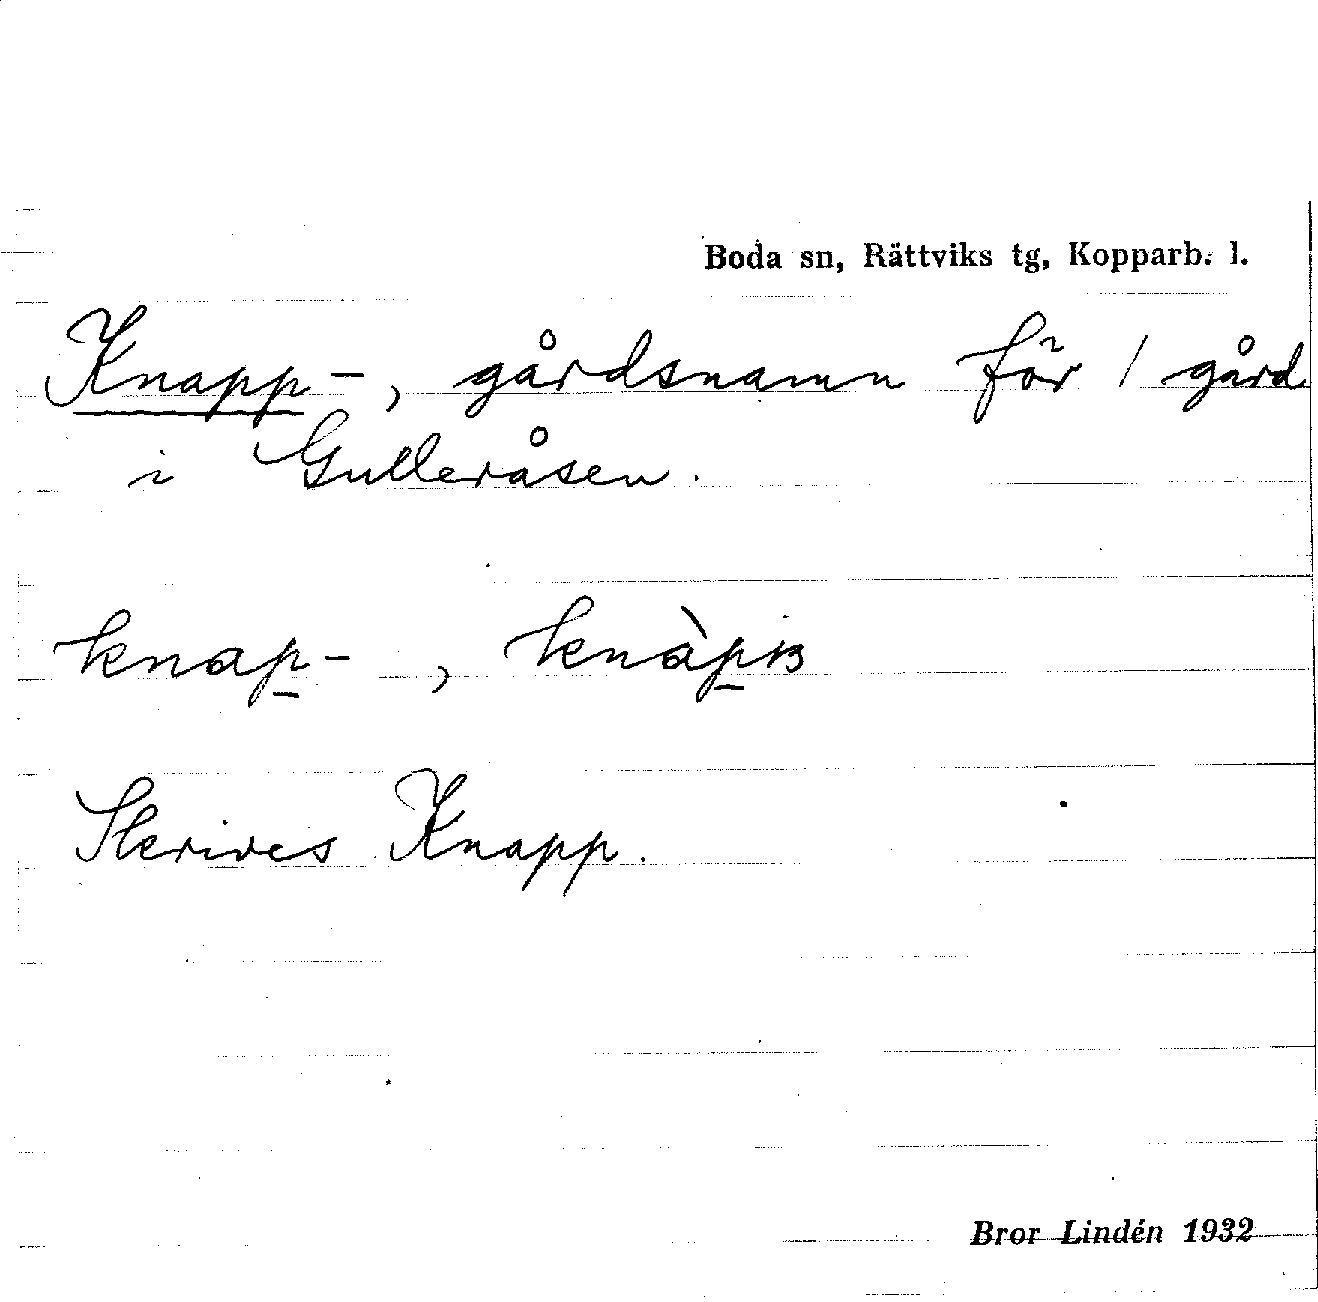 Boda sn, Rättviks tg, Kopparb. l.
Knapp-, gårdsnamn för 1 gård
i Gulleråsen.
knap-,
Skrives Knapp.
Bror Lindén 1932